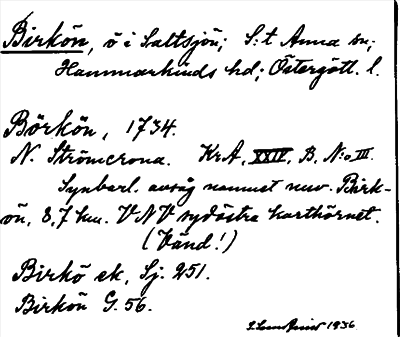 Birkön, ö i Saltsjön; S:t Anna sn;
Hammarkinds hd; Östergötl. l.
Börkön, 1734.
N. Strömcrona. KrA, XXIV, B, N:o III.
Synbarl. avsåg namnet nuv. Birk-
ön, 8,7 km. VNV sydöstra karthörnet.
(Vänd!)
Birkö ek, Sj. 251.
Birkön G. 56.
1936